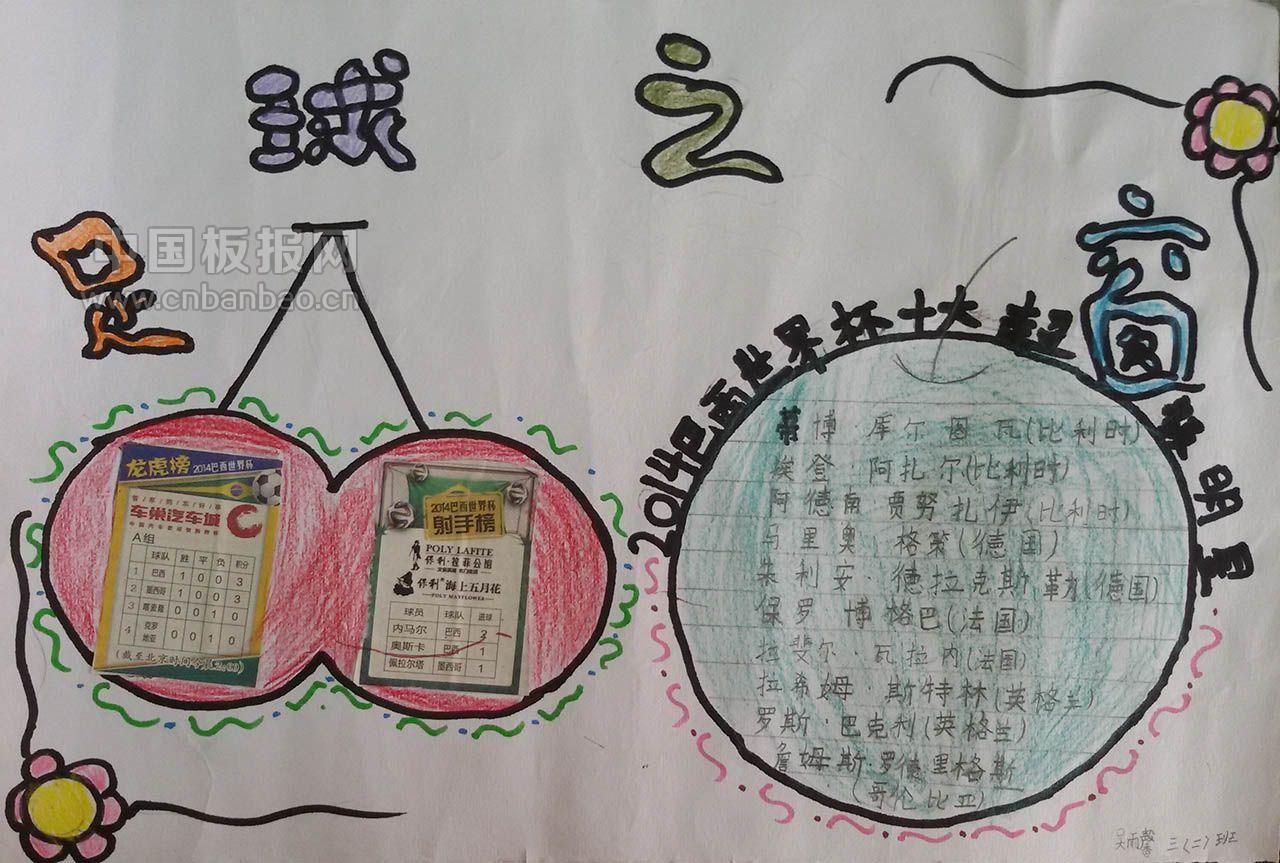 足球之窗
中国板报网
www.cnbanbao.cn
龙虎榜
2014巴西世界杯
车巢汽车城
A组
球队 胜 平 负 积分
1 巴西 1 0 0 3
2 墨西哥 1 0 0 3
3 喀麦隆 0 0 1 0
4 克罗地亚 0 0 1 0
(截至北京时间
2014巴西世界杯
射手榜
POLY LAFITE
保利·拉菲公馆
保利®海上五月花
POLY MAYFLOWER
球员 球队 进球
内马尔 巴西 2
奥斯卡 巴西 1
佩拉尔塔 墨西哥 1
2014巴西世界杯十大超级明星
蒂博·库尔图瓦(比利时)
埃登·阿扎尔(比利时)
阿德南 贾努扎伊(比利时)
马里奥·格策(德国)
朱利安·德拉克斯勒(德国)
保罗·博格巴(法国)
拉斐尔·瓦拉内(法国)
拉希姆·斯特林(英格兰)
罗斯·巴克利(英格兰)
詹姆斯·罗德里格斯
(哥伦比亚)
吴雨馨 三(二)班